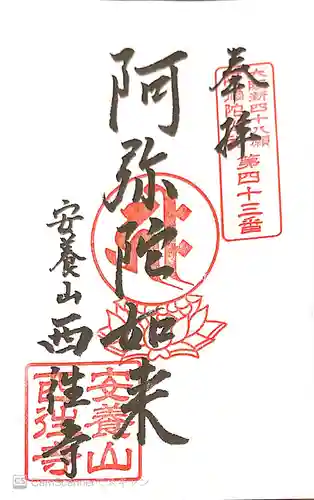 奉拝
大阪新四十八願
阿弥陀巡礼
第四十三番
阿弥陀如来
安養山
西往寺
安養山
西往寺
CS CamScannerでスキャン